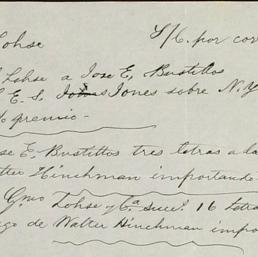 Lohse S/C. por cor
Lohse a Jose E, Bustillos
E. S, Jones sobre N. Y
% premio -
se E, Bustillos tres letras a la
ter Hinchman importando
Gmo Lohse y Ca. sucs. 16 letra
ago de Walter Hinchman impo